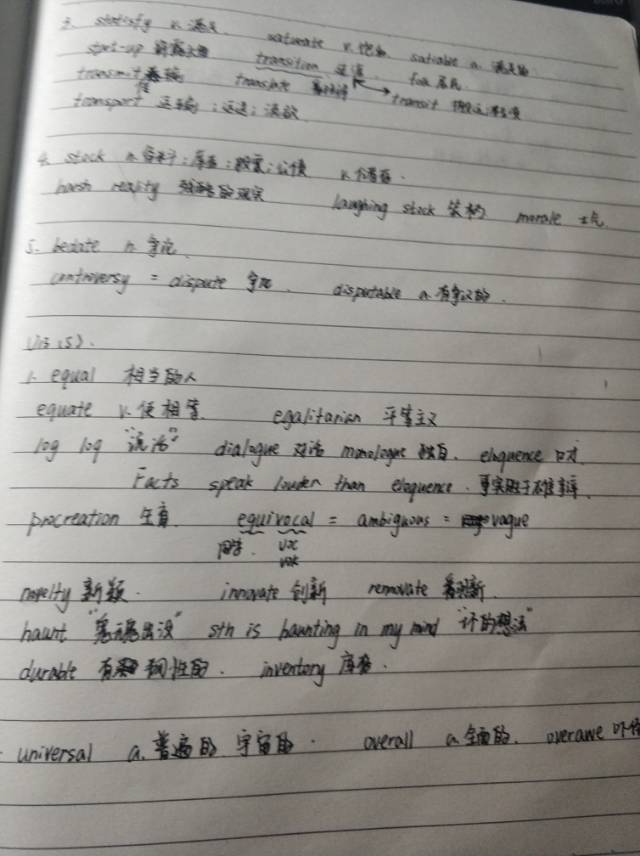 3. statisfy v. 满足 saturate v. 饱和 satiable a. 满足的
start-up transition foa 居民
transmit 传输 translate 翻译 transit
transport 运输; 运送; 流放
4. stock n. 股票; 公债 v.
harsh reality 残酷的现实 laughing stock 笑柄 morale 士气
5. bedate n. 争论
controversy = dispute 争论 disputable a. 有争议的.
U13 (5).
1. equal 相当的人
equate v. 使相等 egalitarian 平等主义
log log "说话" dialogue 对话 monologue 独白. eloquence 口才
Facts speak louder than eloquence. 事实胜于雄辩.
procreation 生育 equivocal = ambiguous = vague
同等. voc
vok
novelty 新颖. innovate 创新 removate 翻新
haunt "鬼魂出没" sth is haunting in my mind
durable 有耐用性的. inventory 库存.
universal a. 普遍的 宇宙的. overall a. 全面的. overawe